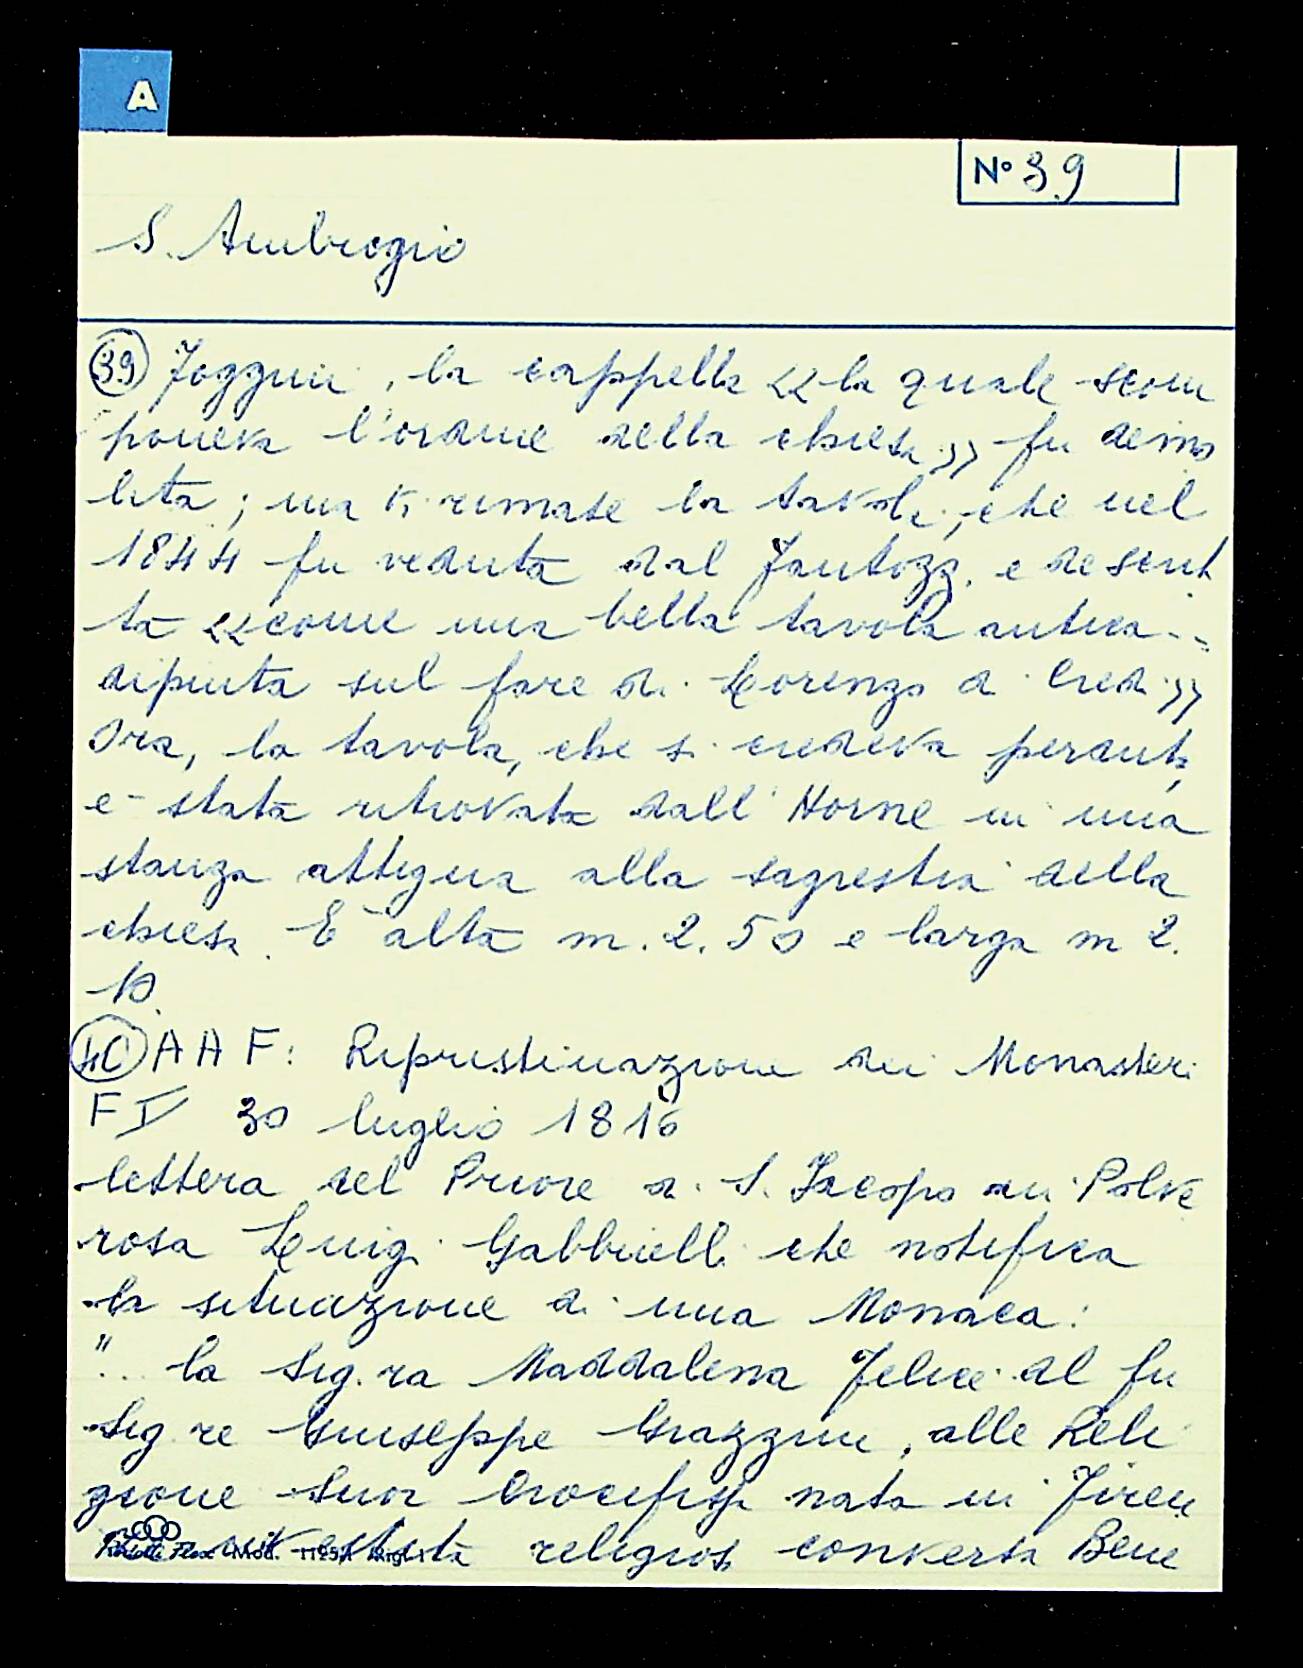 A
N° 39
S. Ambrogio
39 Foggini, la cappella << la quale scom
poneva l'ordine della chiesa >> fu demo
lita; ma vi rimase la tavola, che nel
1844 fu veduta dal Fantozzi e descrit
ta << come una bella tavola antica...
dipinta sul fare di Lorenzo di Credi >>
Ora, la tavola, che si credeva perduta,
è stata ritrovata dall'Horne in una
stanza attigua alla sagrestia della
chiesa. È alta m. 2.50 e larga m 2.
10.
40 AAF: Ripristinazione dei Monasteri
F IV 30 luglio 1816
lettera del Priore di S. Jacopo in Polve
rosa Luigi Gabbrielli che notifica
la situazione di una Monaca:
"... la Sig.ra Maddalena Felice del fu
Sig.re Giuseppe Grazzini, alle Reli
gione Suor Crocifissa nata in Firen
vestita religiosa conversa Bene